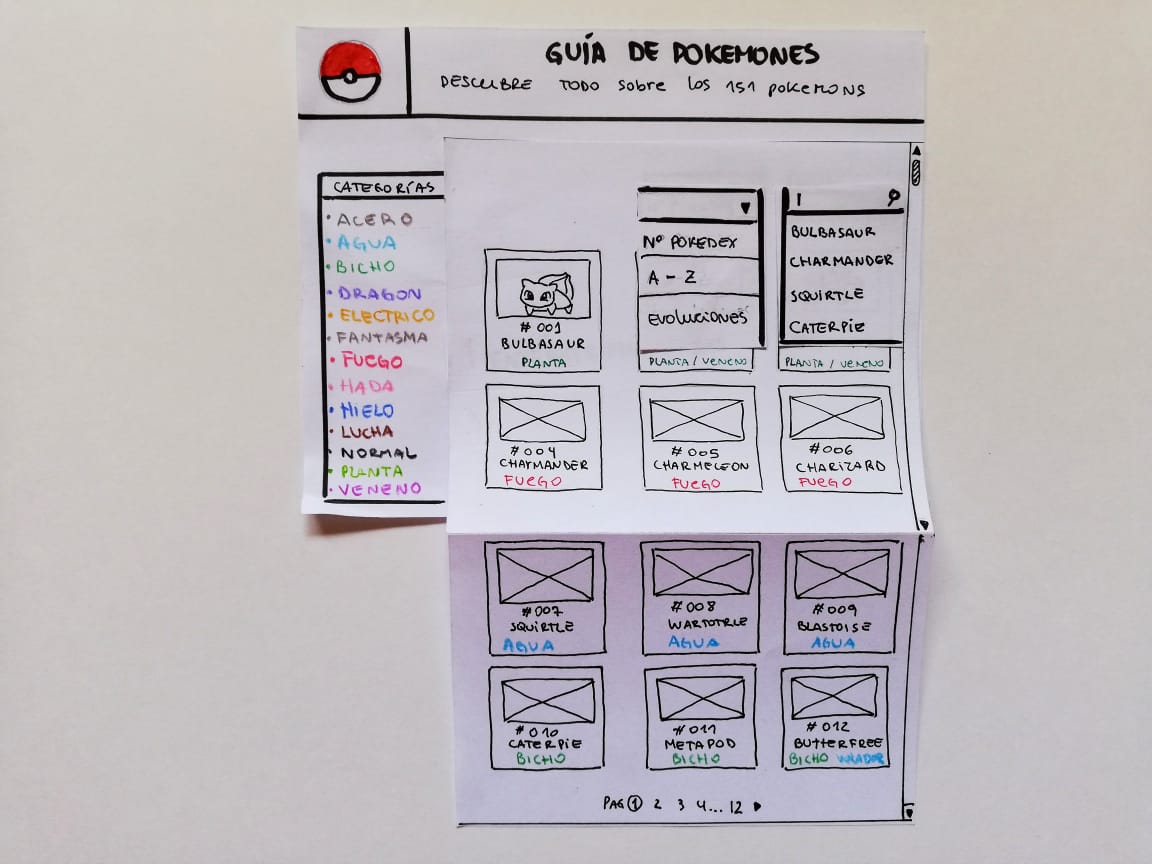 GUÍA DE POKEMONES
DESCUBRE TODO sobre los 151 pokemons
CATEGORÍAS
• ACERO
• AGUA
• BICHO
• DRAGON
• ELECTRICO
• FANTASMA
• FUEGO
• HADA
• HIELO
• LUCHA
• NORMAL
• PLANTA
• VENENO
Nº POKEDEX
A - Z
EVOLUCIONES
BULBASAUR
CHARMANDER
SQUIRTLE
CATERPIE
# 001
BULBASAUR
PLANTA
PLANTA / VENENO
PLANTA / VENENO
#004
CHARMANDER
FUEGO
#005
CHARMELEON
FUEGO
#006
CHARIZARD
FUEGO
#007
SQUIRTLE
AGUA
#008
WARTOTRLE
AGUA
#009
BLASTOISE
AGUA
#010
CATERPIE
BICHO
#011
METAPOD
BICHO
#012
BUTTERFREE
BICHO VOLADOR
PAG 1 2 3 4... 12